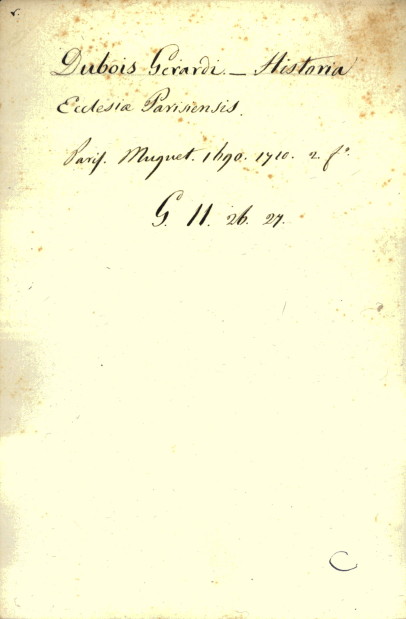 Dubois Gerardi. — Historia
Ecclesiæ Parisiensis.
Paris. Muguet. 1690. 1710. 2. fo.
G. 11. 26. 27.
C